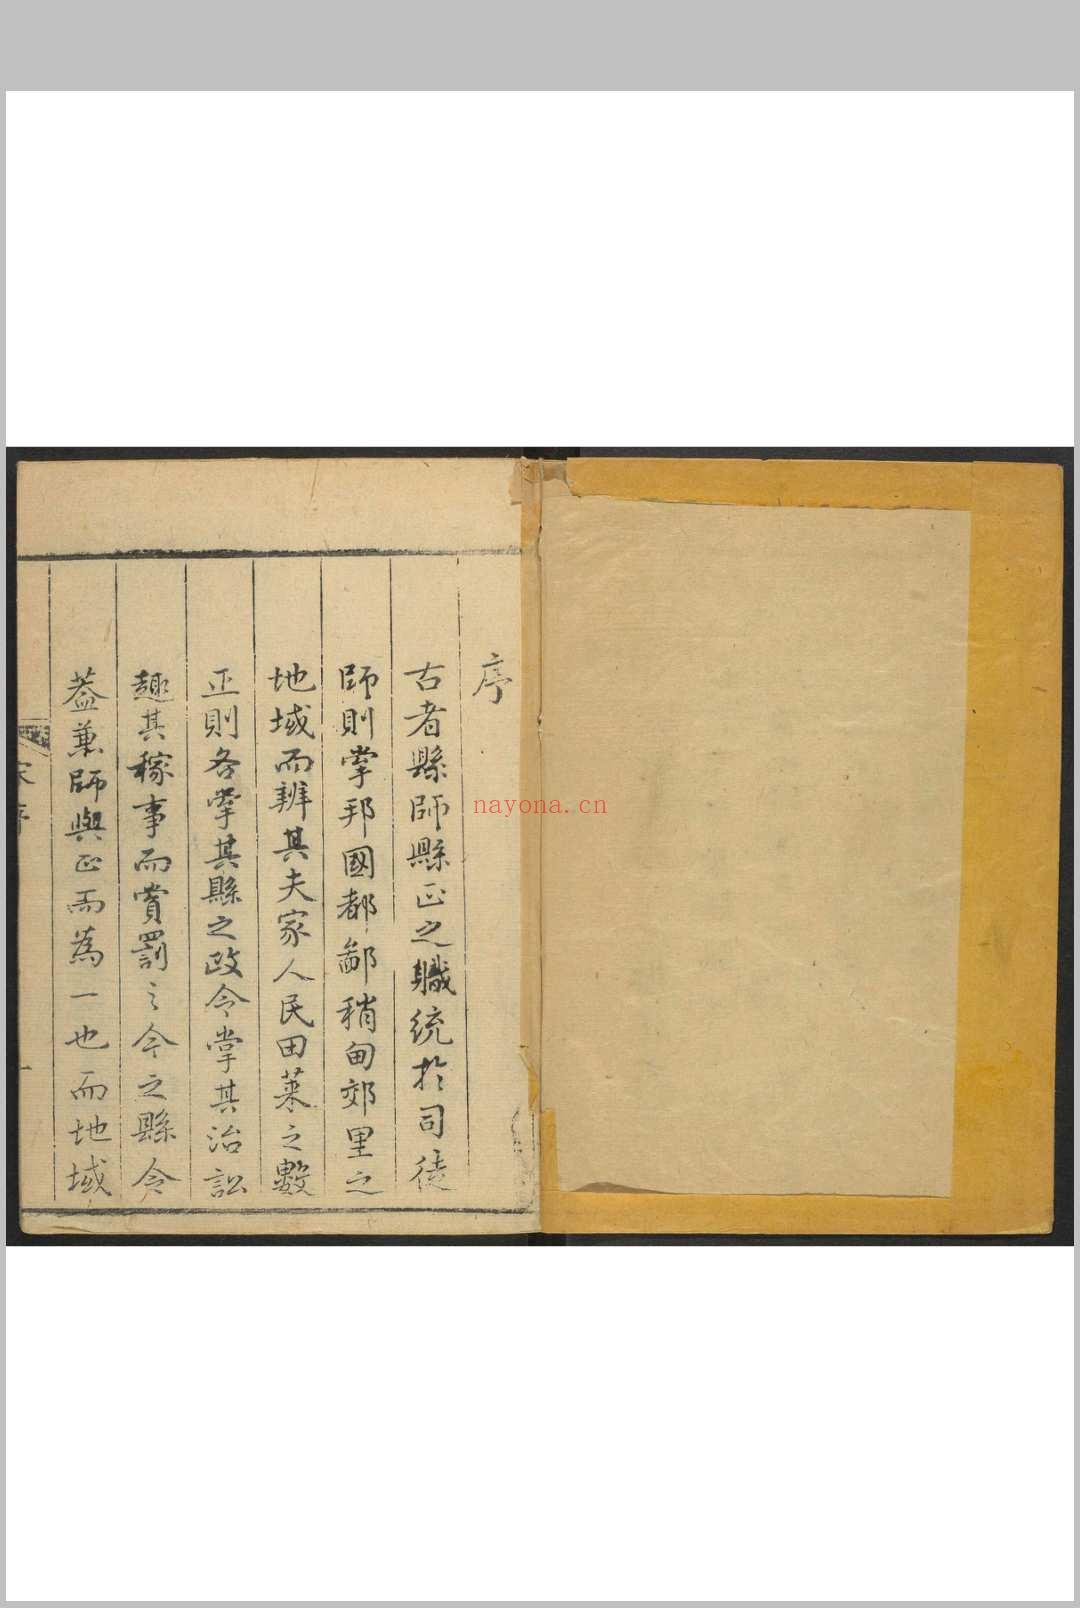 序
古者縣師縣正之職統於司徒
師則掌邦國都鄙稍甸郊里之
地域而辨其夫家人民田萊之數
正則各掌其縣之政令掌其治訟
趣其稼事而賞罰之今之縣令
葢兼師與正而為一也而地域
序
nayona.cn